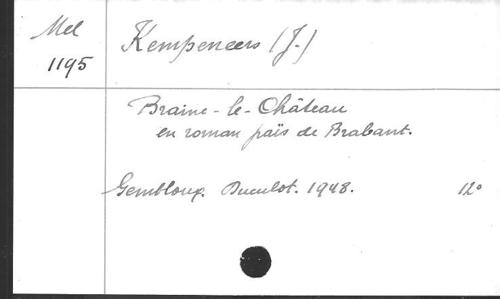 Mel
1195
Kempeneers (J.)
Braine-le-Château
en roman païs de Brabant.
Gembloux. Duculot. 1948. 12°